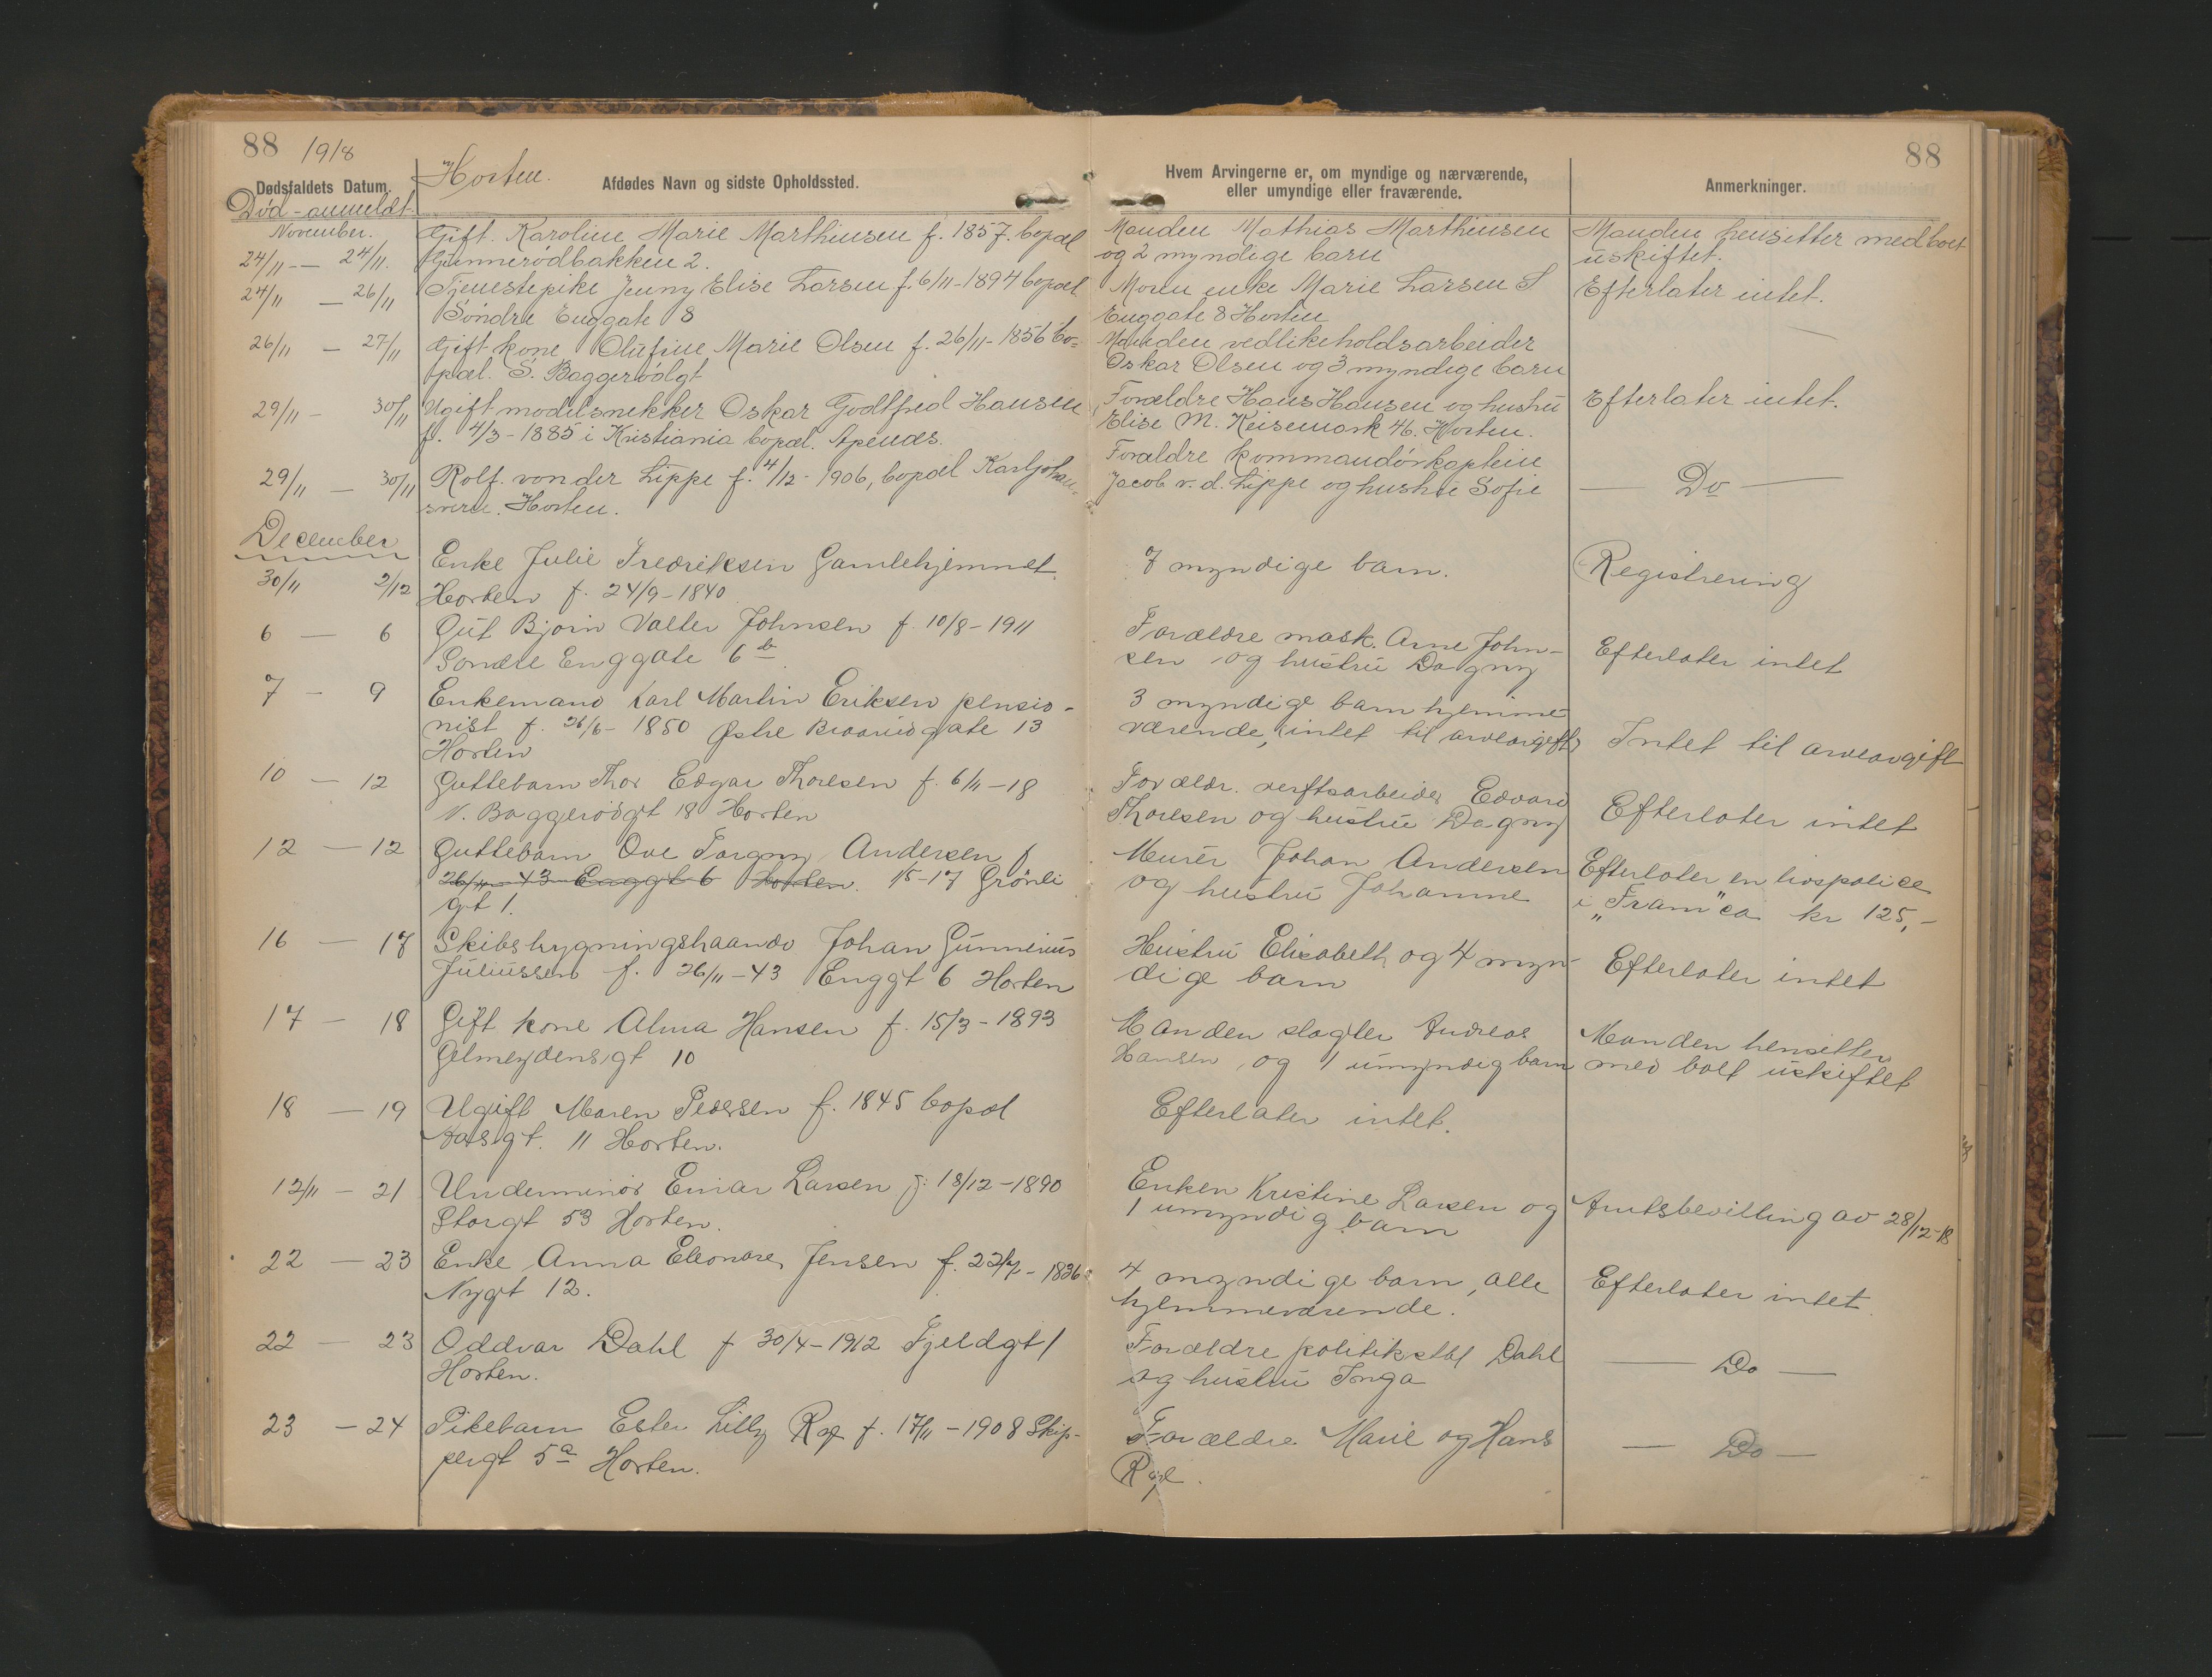 88 1918
Horten.
88
Dødsfaldets Datum.
Afdødes Navn og sidste Opholdssted.
Hvem Arvingerne er, om myndige og nærværende,
eller umyndige eller fraværende.
Anmerkninger.
Død - anmeldt
November.
24/11 — 24/11.
Gift. Karoline Marie Marthinsen f. 1857. bopæl
Gunnerødbakken 2.
Manden Mathias Marthinsen
og 2 myndige barn
Manden hensitter med boet
uskiftet.
24/11 — 26/11
Tjenestepike Jenny Elise Larsen f. 6/11-1894 bopæl
Søndre Enggate 8
Moren enke Marie Larsen S
Enggate 8 Horten
Efterlater intet.
26/11 — 27/11
Gift kone Olufine Marie Olsen f. 26/11-1856 bo=
pæl. S. Baggerødgt
Manden vedlikeholdsarbeider
Oskar Olsen og 3 myndige barn
29/11 — 30/11
Ugift modelsnekker Oskar Godtfred Hansen
f. 4/3-1885 i Kristiania bopæl. Apenæs.
Forældre Hans Hansen og hustru
Elise M. Keisemark 46. Horten.
Efterlater intet.
29/11 — 30/11
Rolf. von der Lippe f. 4/12-1906, bopæl Karljohan-
svern. Horten.
Forældre kommandørkaptein
Jacob v. d. Lippe og hustru Sofie
— Do —
December
30/11 2/12
Enke Julie Fredriksen Gamlehjemmet
Horten f. 24/9-1840
7 myndige barn.
Registrering
6 — 6
Gut Bjørn Valter Johnsen f. 10/8-1911
Søndre Enggate 6 b
Forældre mask. Arne John-
sen og hustru Dagny
Efterlater intet
7 — 9
Enkemand Karl Martin Eriksen pensio-
nist f. 26/6-1850 Østre Braarudgate 13
Horten
3 myndige barn hjemme
værende, intet til arveavgift
Intet til arveavgift
10 — 12
Guttebarn Thor Edgar Thoresen f. 6/11-18
N. Baggerødgt 18 Horten
Forældr. verftsarbeider Edvard
Thoresen og hustru Dagny
Efterlater intet
12 — 12
Guttebarn Ove Torgny Andersen f
26/11-43 Enggt 6 Horten. 1/5-17 Grønli
gt 1.
Murer Johan Andersen
og hustru Johanne
Efterlater en livspolice
i „Fram" ca kr 125,-
16 — 17
Skibsbygningshaandv Johan Gunnerius
Juliussen f. 26/11-43 Enggt 6 Horten
Hustru Elisabeth og 4 myn-
dige barn
Efterlater intet
17 — 18
Gift kone Alma Hansen f. 15/3-1893
Gjelmeydensgt 10
Manden slagter Andreas
Hansen, og 1 umyndig barn
Manden hensitter
med boet uskiftet
18 — 19
Ugift Maren Pedersen f. 1845 bopæl
gt. 11 Horten.
Efterlater intet.
12/11 — 21
Underminør Einar Larsen f. 18/12-1890
Storgt 53 Horten.
Enken Kristine Larsen og
1 umyndig barn
Amtsbevilling av 28/12-18
22 — 23
Enke Anna Eleonore Jensen f. 1836
Nygt 12.
4 myndige barn, alle
hjemmeværende.
Efterlater intet
22 — 23
Oddvar Dahl f 30/4-1912 Fjeldgt 1
Horten.
Forældre politikstbl Dahl
og hustru Inga
— Do —
23 — 24
Pikebarn Ester Lilly f. 17/11-1908 Skip-
pergt 5a Horten.
Forældre Marie og Hans
— Do —